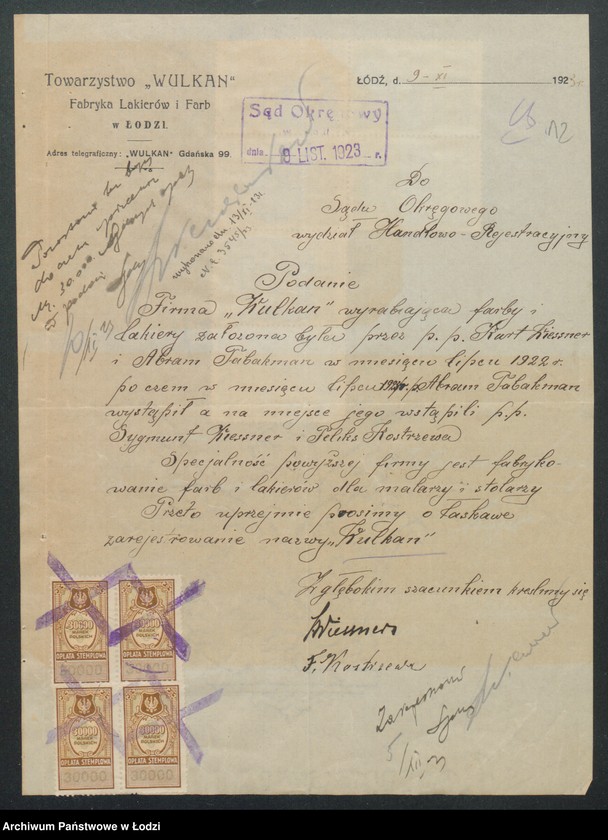 Towarzystwo „WULKAN“
Fabryka Lakierów i Farb
w ŁODZI.
Adres telegraficzny: „WULKAN“ Gdańska 99.
ŁÓDŹ, d. 9-XI 1923 r.
Sąd Okręgowy
dnia 9 LIST. 1923 r.
12
wykonano dn. 13/XI-23r.
Do
Sądu Okręgowego
wydział Handlowo-Rejestracyjny
Podanie
Firma „Wulkan” wyrabiająca farby i
lakiery założona była przez p.p. Kurt Kiessner
i Abram Tabakman w miesiącu lipcu 1922 r.
po czem w miesiącu lipcu p. Abram Tabakman
wystąpił a na miejsce jego wstąpili p.p.
Sygmunt Kiessner i Feliks Kostrzewa
Specjalność powyższej firmy jest fabryko-
wanie farb i lakierów dla malarzy i stolarzy
Przeto uprzejmie prosimy o łaskawe
zarejestrowanie nazwy „Wulkan”
Z głębokim szacunkiem kreslimy się
F. Kostrzewa
5/XII 23
30000
MAREK
POLSKICH
OPŁATA STEMPLOWA
30000
30000
MAREK
POLSKICH
OPŁATA STEMPLOWA
30000
30000
MAREK
POLSKICH
OPŁATA STEMPLOWA
30000
30000
MAREK
POLSKICH
OPŁATA STEMPLOWA
30000
Archiwum Państwowe w Łodzi